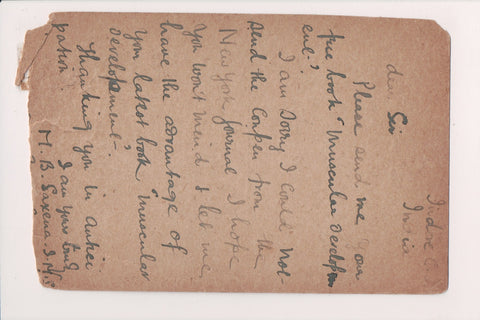 Indore
India
dear Sir
Please send me your
free book "Muscular Developm
ent".
I am sorry I could not
send the Coupen from the
New york Journal I hope
you won't mind & let me
have the advantage of
your latest book "Muscular
developement".
Thanking you in antici
pation.
I am yours truly
M. B. Saxena